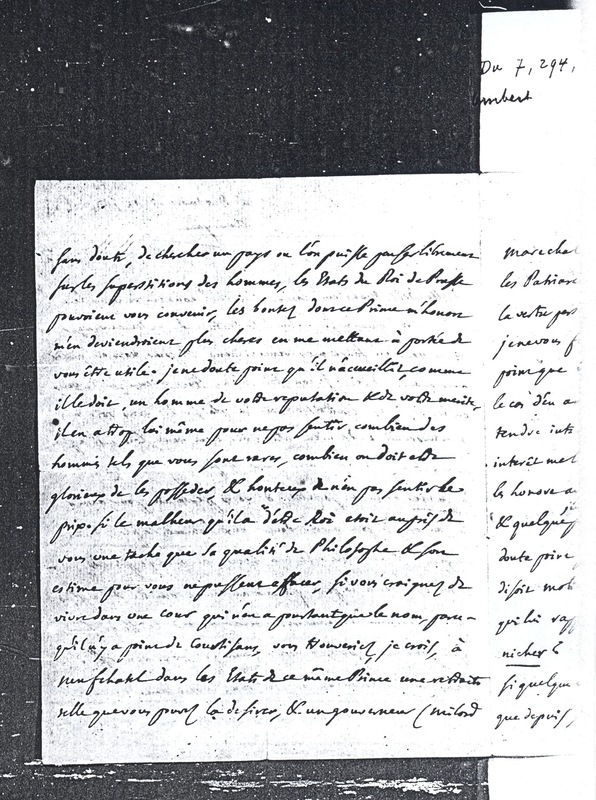 Du 7, 294,
mbert
sans doute, de chercher un pays ou l'on puisse penser librement
sur les superstitions des hommes, les Etats du Roi de Prusse
pouvoient vous convenir, les bontez dont ce Prince m'honore
m'en deviendroient plus cheres en me mettant à portée de
vous être utile. je ne doute point qu'il n'accueillît, comme
il le doit, un homme de votre reputation & de votre merite,
il en a trop lui même pour ne pas sentir combien des
hommes tels que vous sont rares, combien on doit etre
glorieux de les posseder, & honteux de n'en pas sentir le
prix. si le malheur qu'il a d'être Roi etoit auprès de
vous une tache que sa qualité de Philosophe & son
estime pour vous ne pussent effacer, si vous craignez de
vivre dans une cour qui n'en a pourtant que le nom, parce-
qu'il n'y a point de Courtisans, vous trouveriez, je crois, à
Neufchatel dans les Etats de ce même Prince une retraite
telle que vous pouvez la desirer, & un gouverneur (milord
marechal
les Patriar
la vertu per
je ne vous f
point que
le cas d'en a
tendre inte
interêt mel
les honore a
& quelque
doute point
disoit mot
qu'elui rap
nicher
si quelque
que depuis,